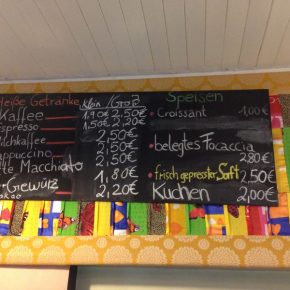 Heiße Getränke Klein / Groß
Kaffee 1,90 2,50€
Espresso 1,50€ 2,20€
Milchkaffee 2,50€
Cappuccino 2,50€
Latte Macchiato 2,50€
1,80€
Gewürz 2,20€
Speisen
• Croissant 1,00€
• belegtes Focaccia
2,80€
• frisch gepresster Saft 2,50€
Kuchen 2,00€